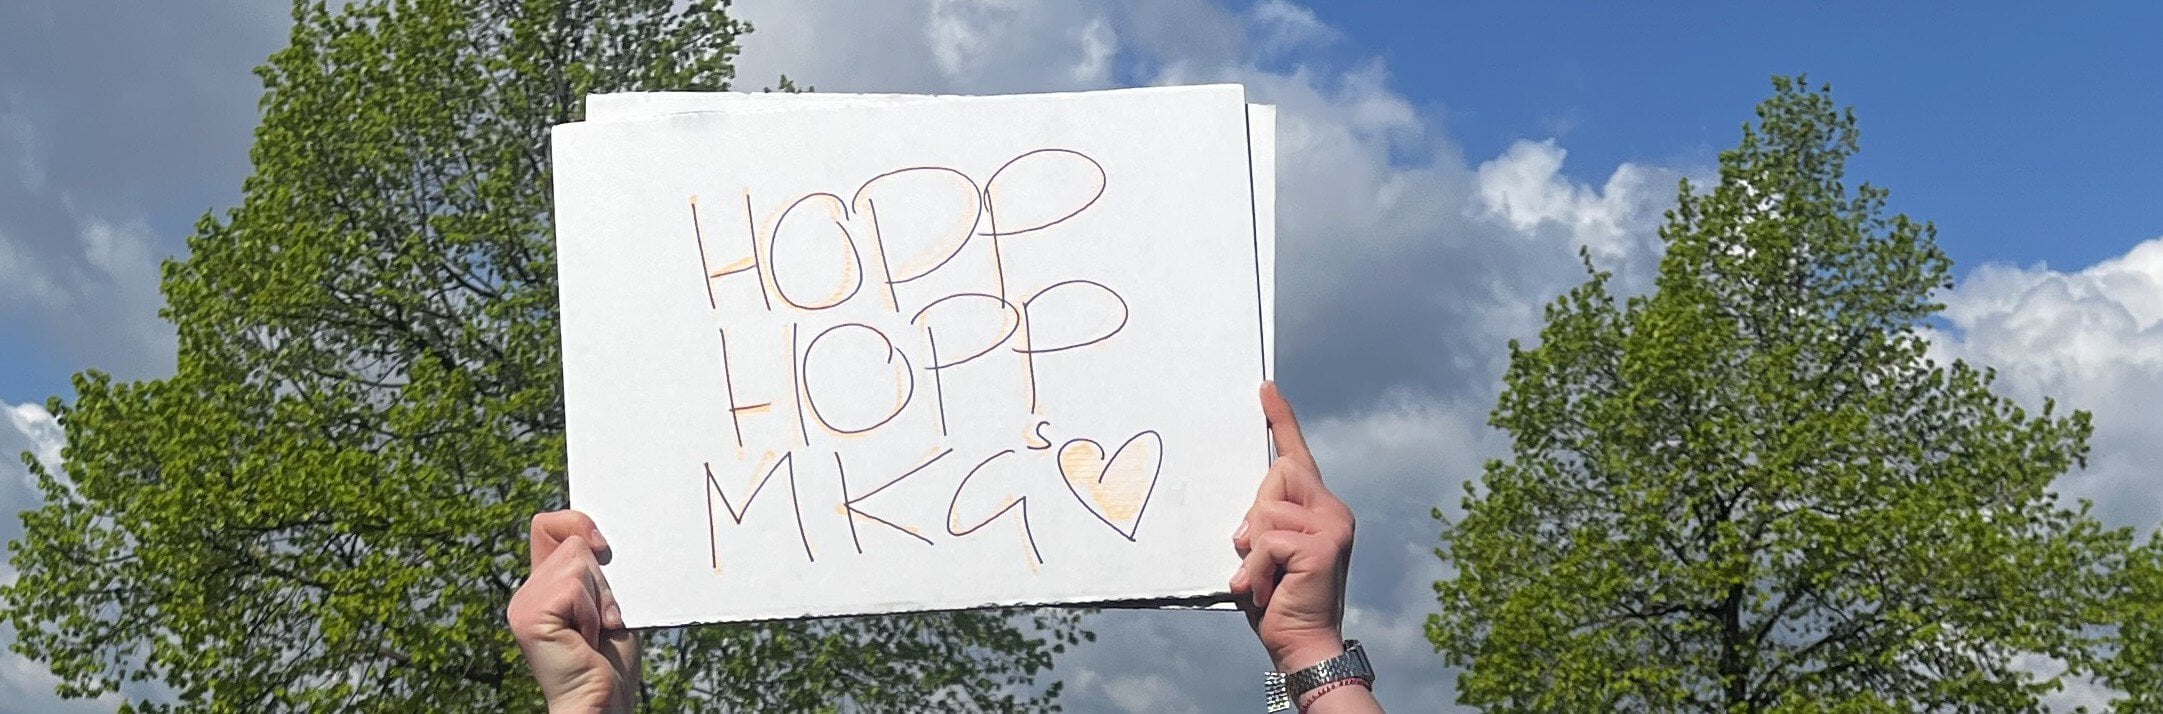 HOPP
HOPP
MKG's ♡